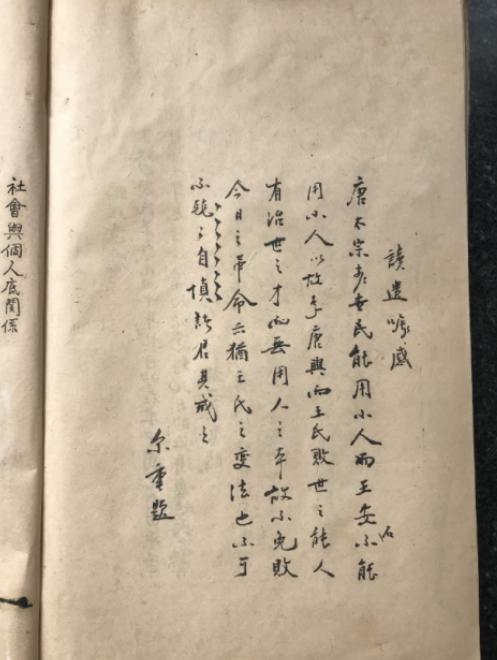 讀遺囑感
唐太宗李世民能用小人而王安石不能
用小人以故李唐興而王氏敗世之能人
有治世之才而無用人之故不免敗
今日之革命亦猶王氏之變法也不可
不自慎君其戒之
尔重題
社會與個人底關係